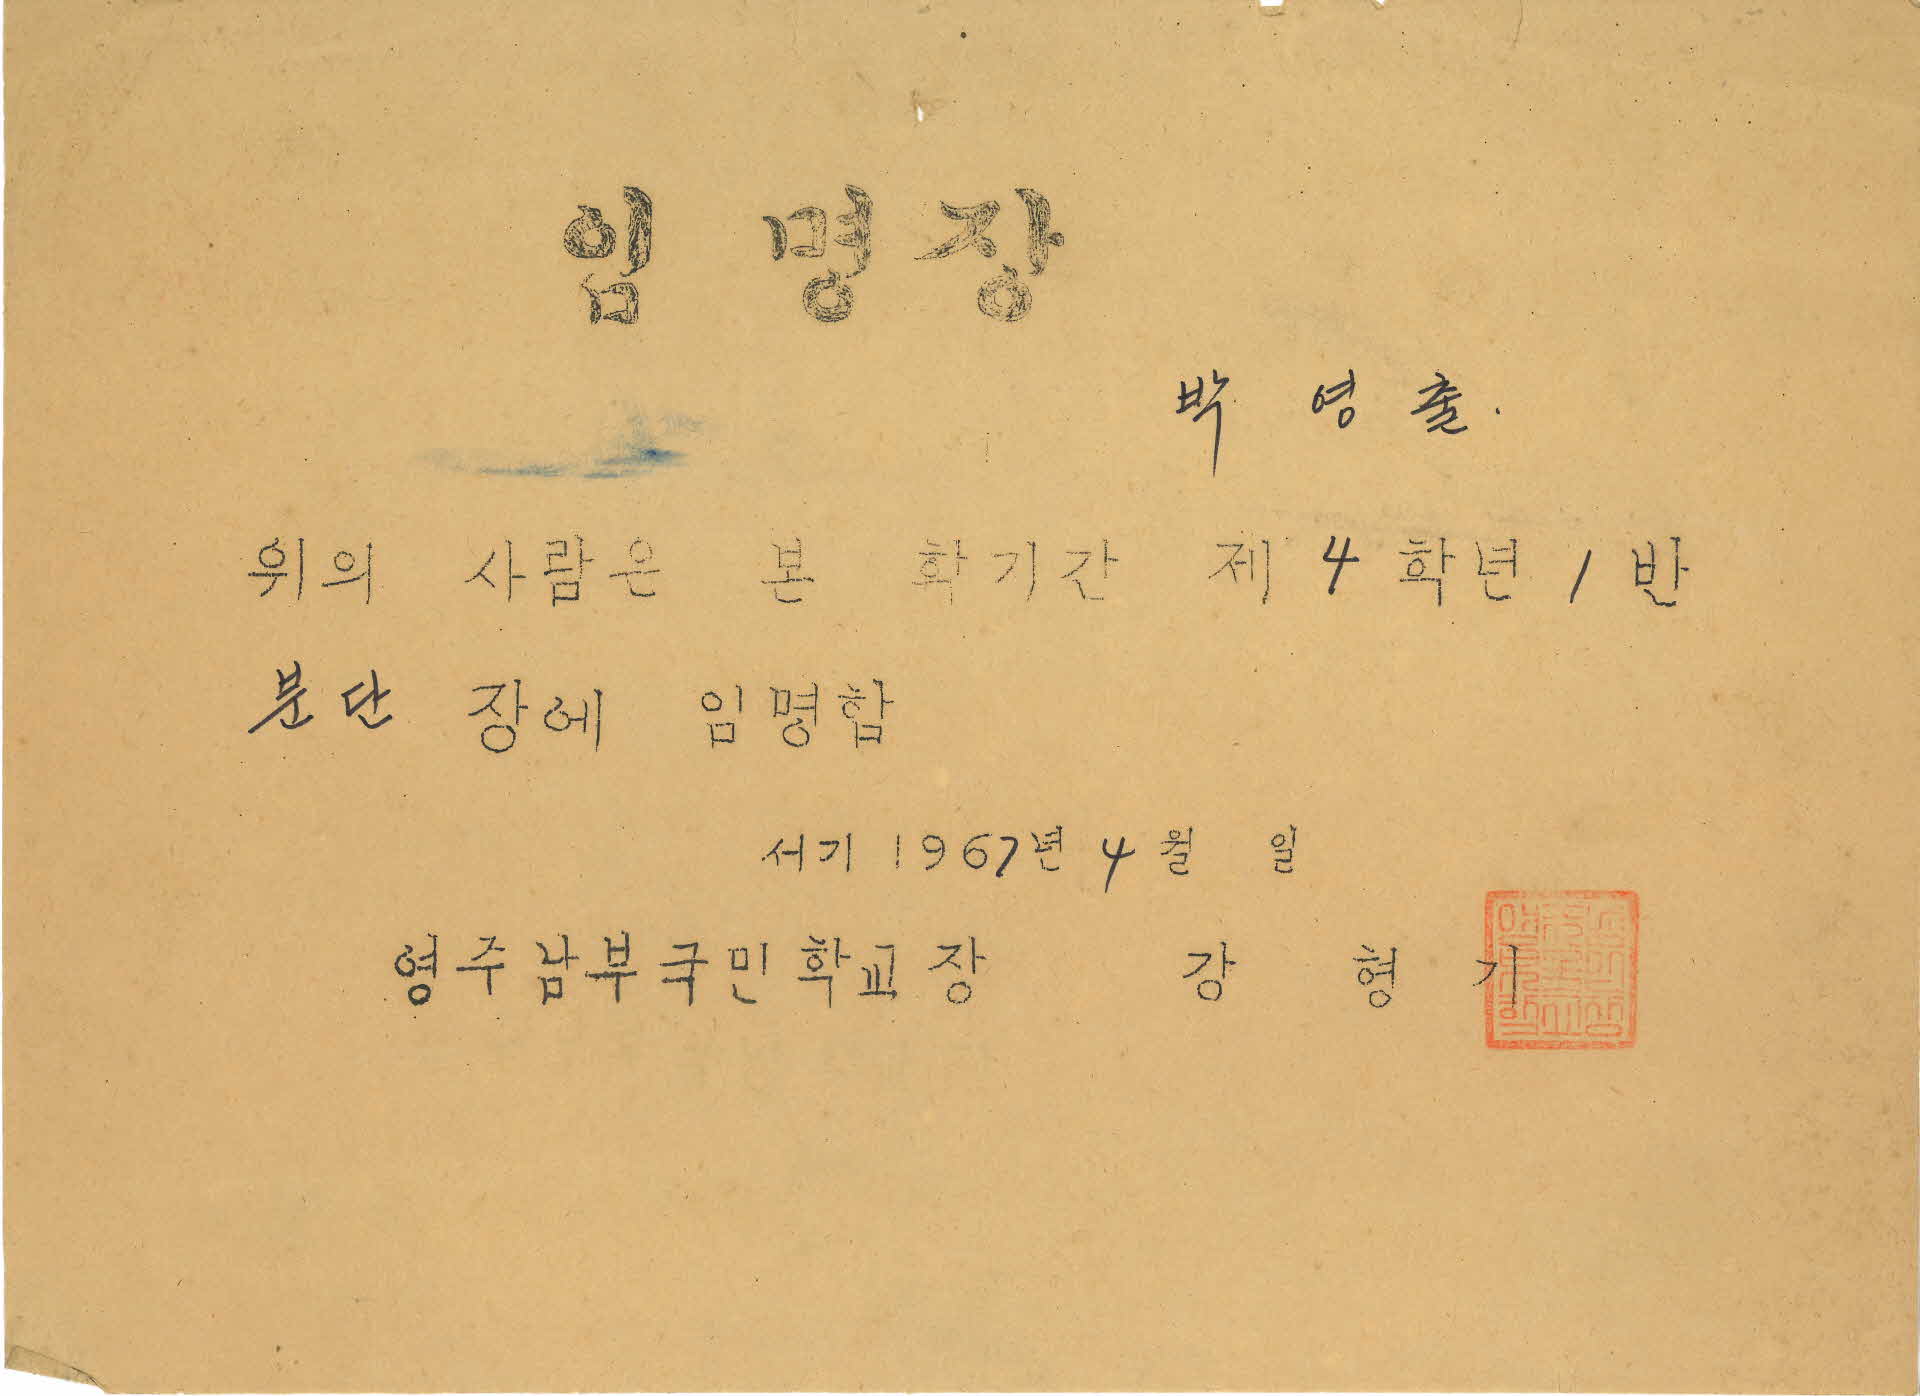 임명장
박영출.
위의 사람은 본 학기간 제4학년 1반
분단장에 임명함
서기 1967년 4월 일
영주남부국민학교장 강형기